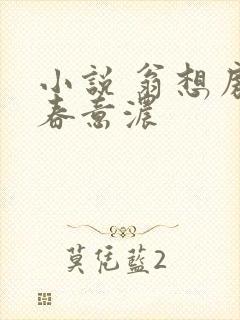 小説 翁想
春意濃
莫凭藍2